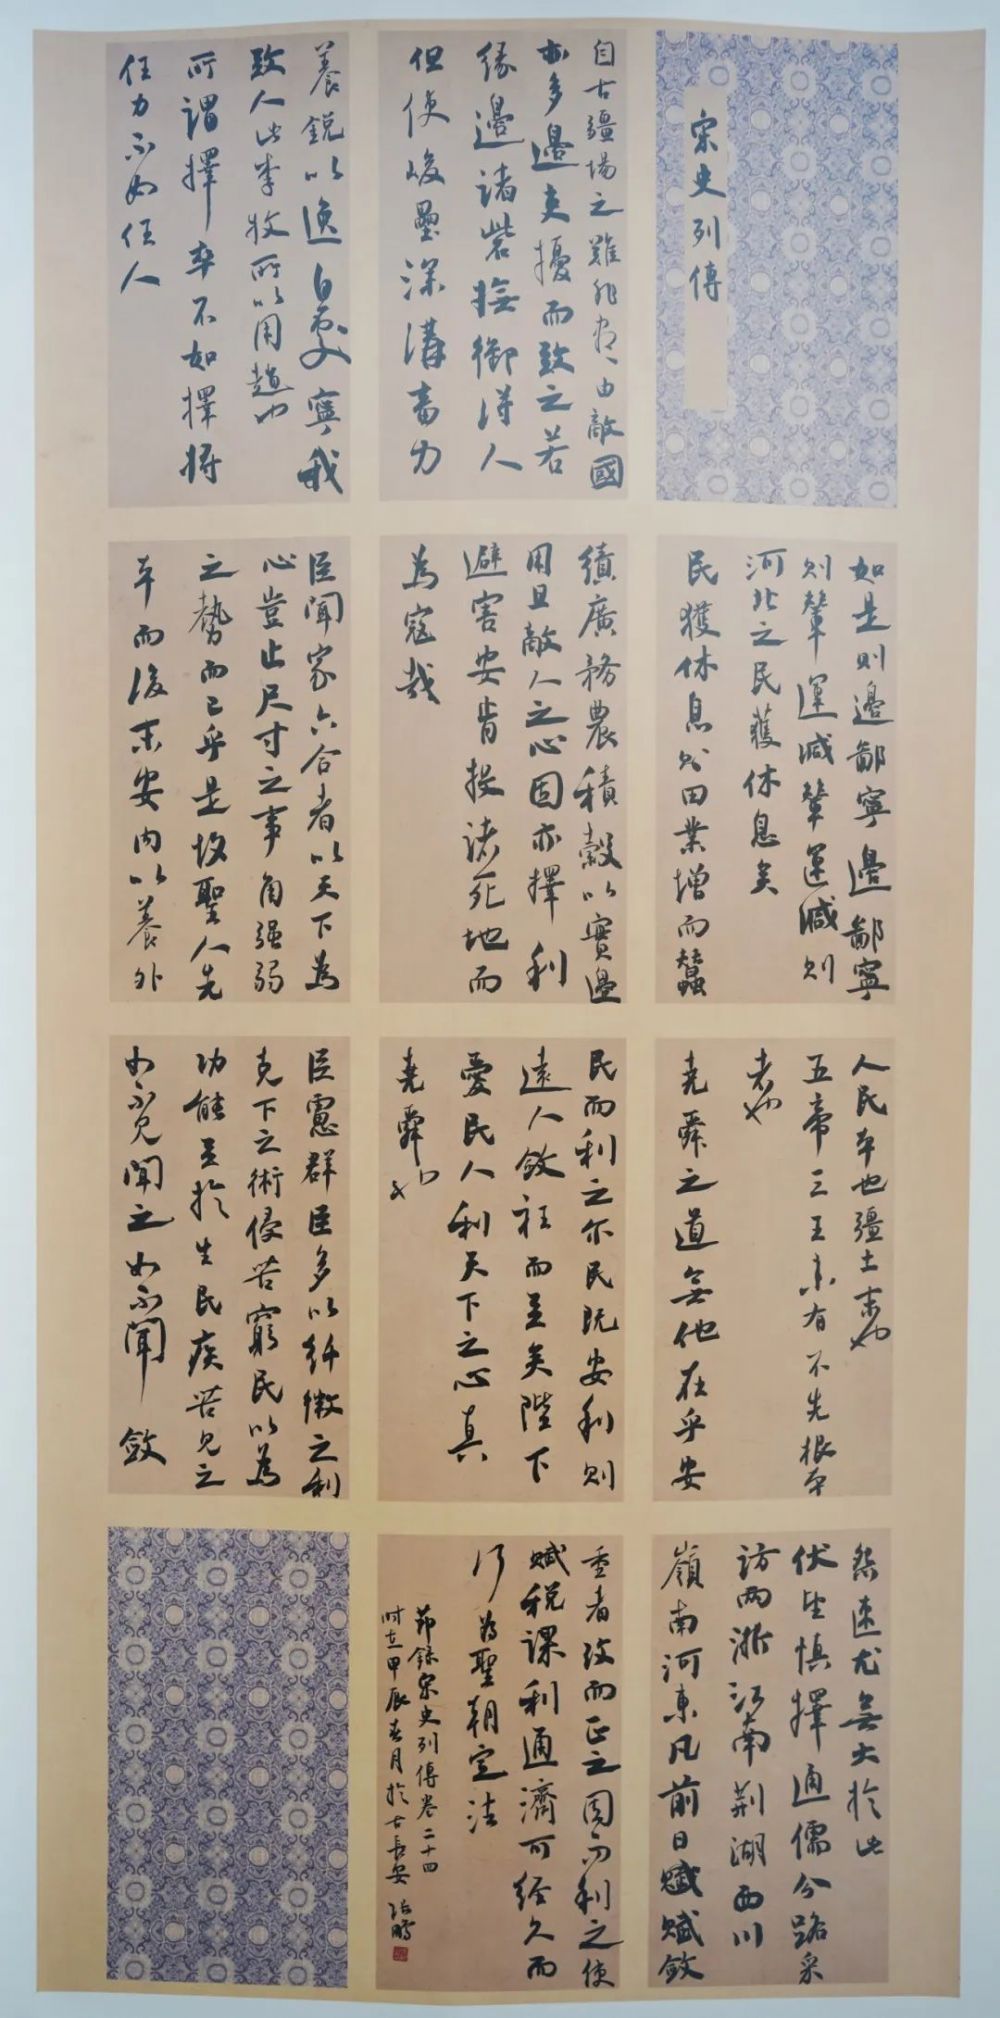 宋史列傳
自古疆場之難非盡由敵國
亦多邊吏擾而致之若
緣邊諸砦撫御得人
但使峻壘深溝畜力
養銳以逸自處寧我
致人此李牧所以用趙也
所謂擇卒不如擇將
任力不如任人
如是則邊鄙寧邊鄙寧
則輦運減輦運減則
河北之民獲休息矣
民獲休息則田業增而蠶
績廣務農積穀以實邊
用且敵人之心固亦擇利
避害安肯投諸死地而
為寇哉
臣聞家六合者以天下為
心豈止尺寸之事角強弱
之勢而已乎是故聖人先
本而後末安內以養外
人民本也疆土末也
五帝三王未有不先根本
者也
堯舜之道無他在乎安
民而利之尔民既安利則
遠人斂衽而至矣陛下
愛民人利天下之心真
堯舜也
臣慮群臣多以纤微之利
克下之術侵苦窮民以為
功能至於生民疾苦見之
如不見聞之如不聞斂
怨速尤無大於此
伏望慎擇通儒分路采
訪兩浙江南荊湖西川
嶺南河東凡前日賦賦斂
重者改而正之因而利之使
賦税課利通濟可经久而
行為聖朝定法
節錄宋史列傳卷二十四
时在甲辰春月於古長安 張鵬